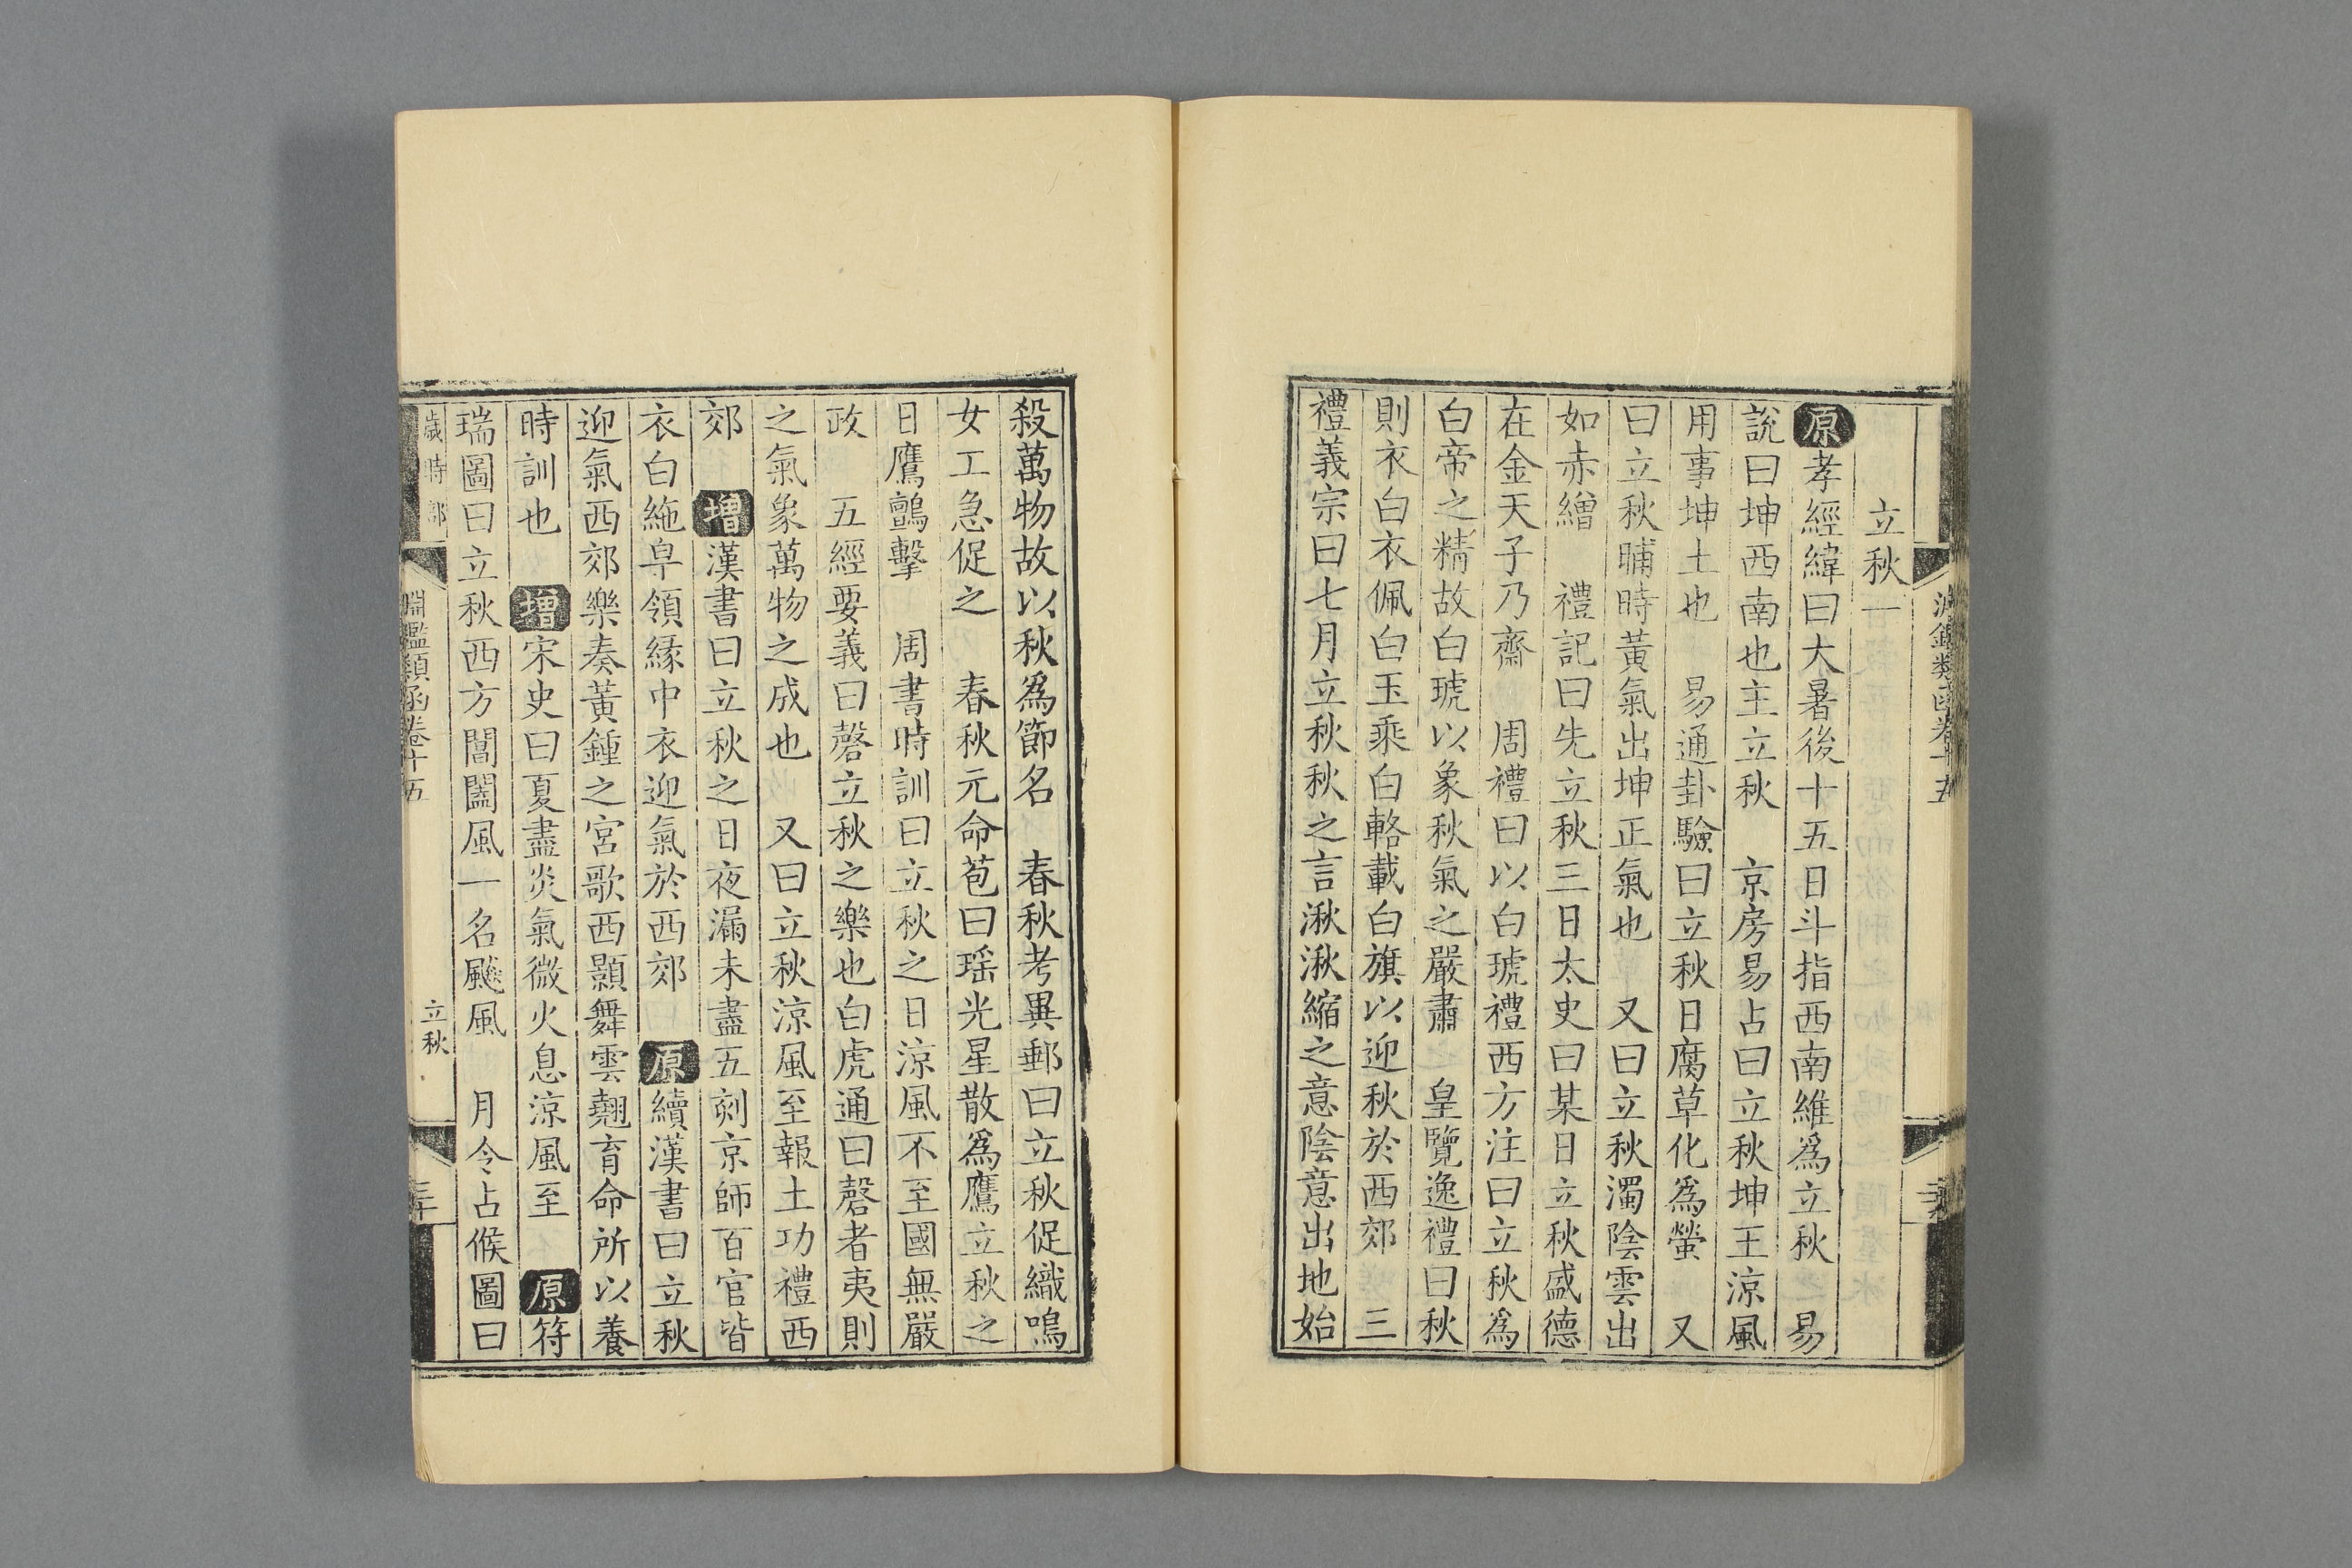 淵鑑類函卷十五
立秋一
原孝經緯曰大暑後十五日斗指西南維爲立秋　易
說曰坤西南也主立秋　京房易占曰立秋坤王涼風
用事坤土也　易通卦驗曰立秋日腐草化爲螢　又
曰立秋晡時黃氣出坤正氣也　又曰立秋濁陰雲出
如赤繒　禮記曰先立秋三日太史曰某日立秋盛德
在金天子乃齋　周禮曰以白琥禮西方注曰立秋爲
白帝之精故白琥以象秋氣之嚴肅　皇覽逸禮曰秋
則衣白衣佩白玉乘白輅載白旗以迎秋於西郊　三
禮義宗曰七月立秋秋之言湫湫縮之意陰意出地始
殺萬物故以秋爲節名　春秋考異郵曰立秋促織鳴
女工急促之　春秋元命苞曰瑶光星散爲鷹立秋之
日鷹鸇擊　周書時訓曰立秋之日涼風不至國無嚴
政　五經要義曰磬立秋之樂也白虎通曰磬者夷則
之氣象萬物之成也　又曰立秋涼風至報土功禮西
郊　增漢書曰立秋之日夜漏未盡五刻京師百官皆
衣白絁皁領緣中衣迎氣於西郊　原續漢書曰立秋
迎氣西郊樂奏黃鍾之宮歌西顥舞雲翹育命所以養
時訓也　增宋史曰夏盡炎氣微火息涼風至　原符
瑞圖曰立秋西方閶闔風一名飉風　月令占候圖曰
歲時部　淵鑑類函卷十五　立秋　三十